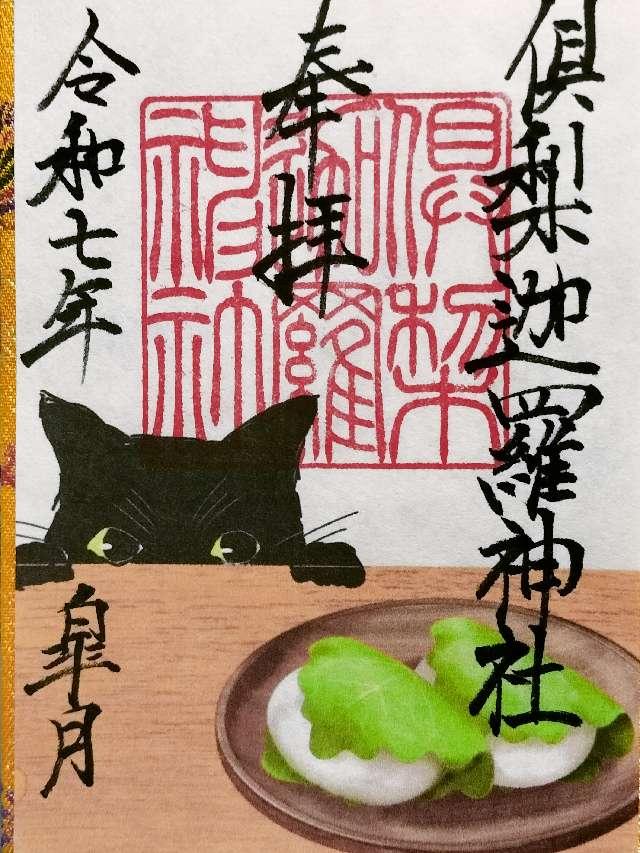 倶梨迦羅神社
奉拝
倶梨
迦羅
神社
令和七年
皐月